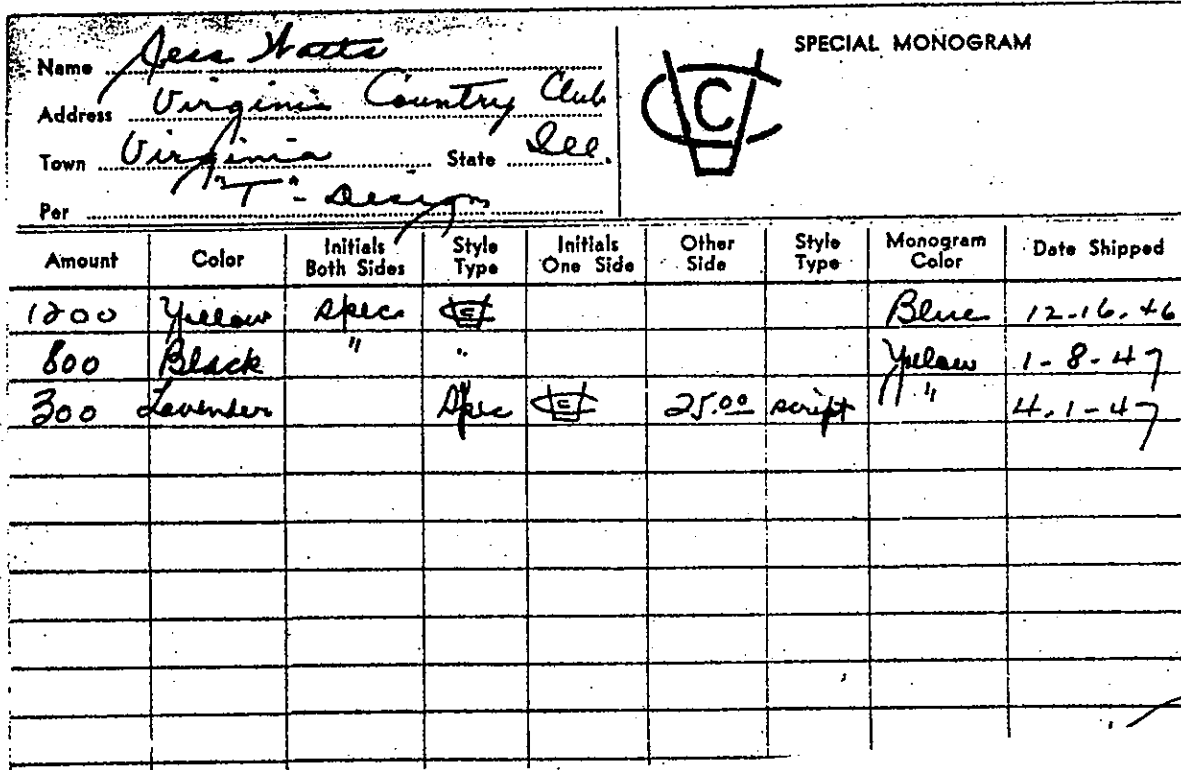 SPECIAL MONOGRAM
Name Jess Watts
Address Virginia Country Club
Town Virginia State Ill.
"T" - Design
Per
C
Amount Color Initials Both Sides Style Type Initials One Side Other Side Style Type Monogram Color Date Shipped
1200 Yellow Spec C Blue 12-16-46
800 Black " " Yellow 1-8-47
300 Lavender Spec C 25.00 script " 4-1-47